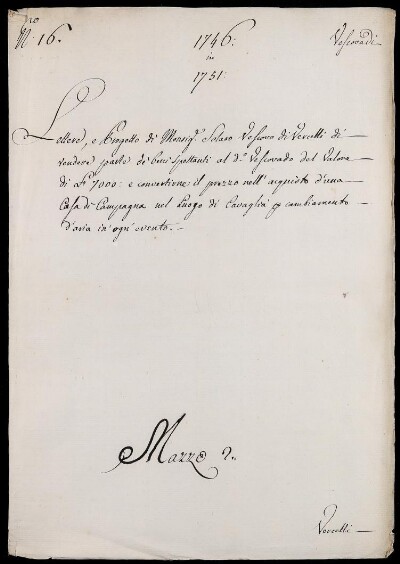 N.º 16.
1746:
in
1751:
Vescovadi
Lettere, e Progetto di Monsig.r Solaro Vescovo di Vercelli di
vendere parte de' beni spettanti al d.º Vescovado del Valore
di 7000: e convertirne il prezzo nell' acquisto d'una
Casa di Campagna nel Luogo di Cavaglià cambiamento
d'aria in' ogni evento.
Mazzo 2.
Vercelli